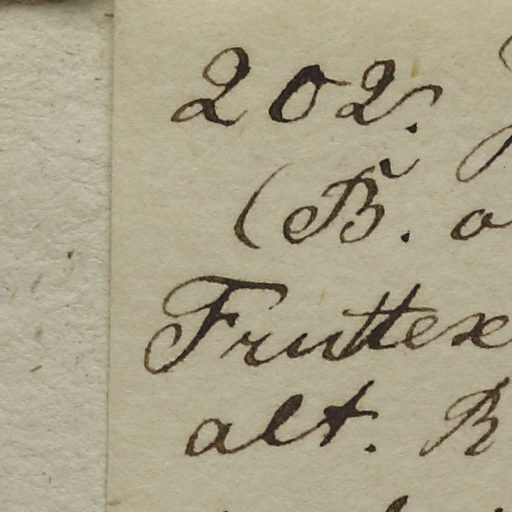 202.
(B. o
Fruttex
alt. B